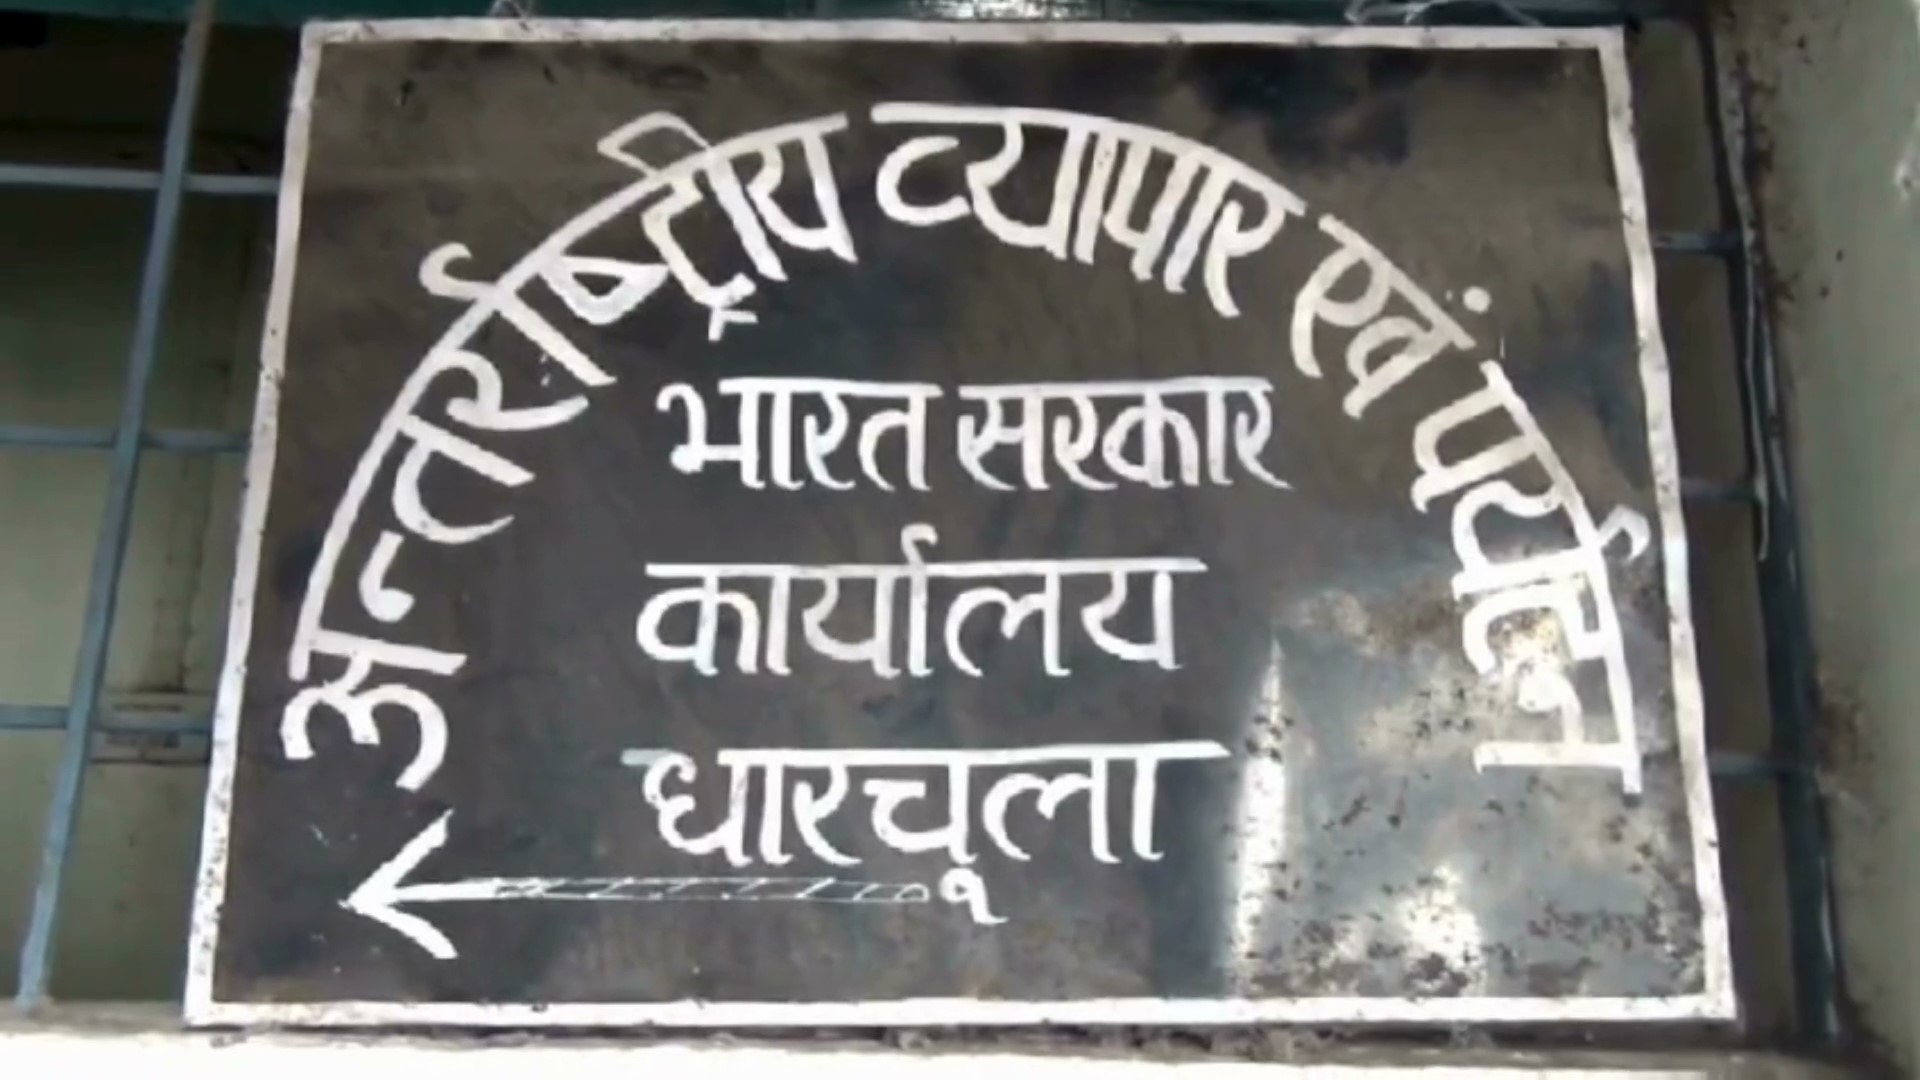 अन्तर्राष्ट्रीय व्यापार एवं पर्यटन
भारत सरकार
कार्यालय
धारचूला